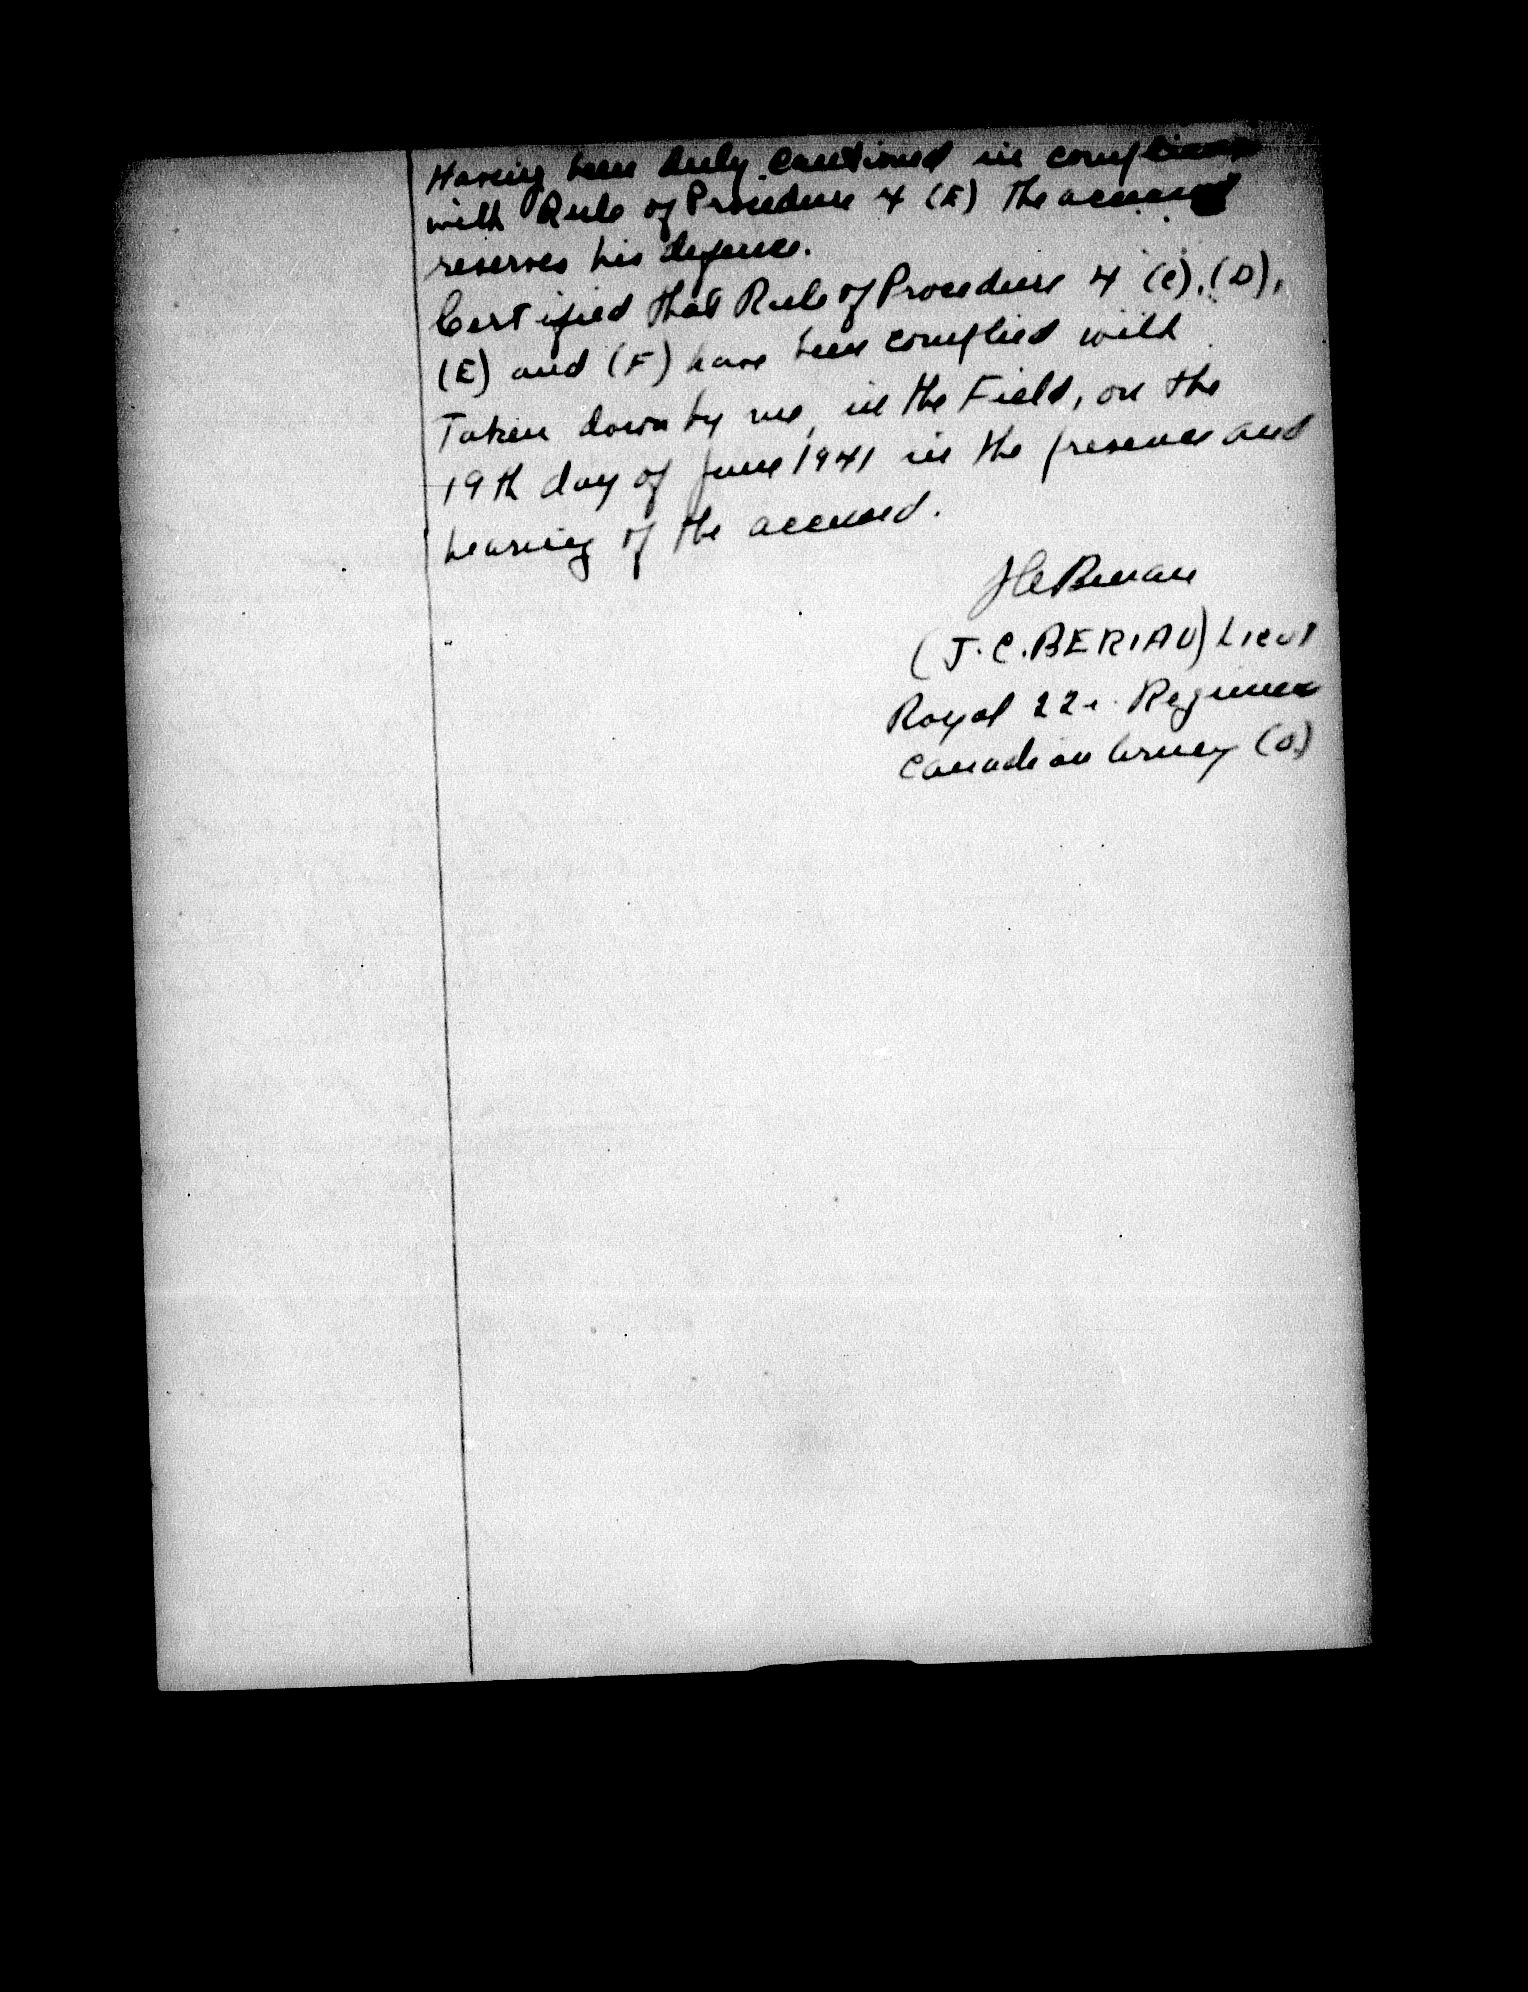 Having been duly cautioned in compliance
with Rule of Procedure 4 (E) the accused
reserves his defence.
Certified that Rule of Procedure 4 (C), (D),
(E) and (F) have been complied with
Taken down by me, in the Field, on the
19th day of June 1941 in the presence and
hearing of the accused.
JC Beriau
(J.C. BERIAU) Lieut
Royal 22e Regiment
Canadian Army (O)